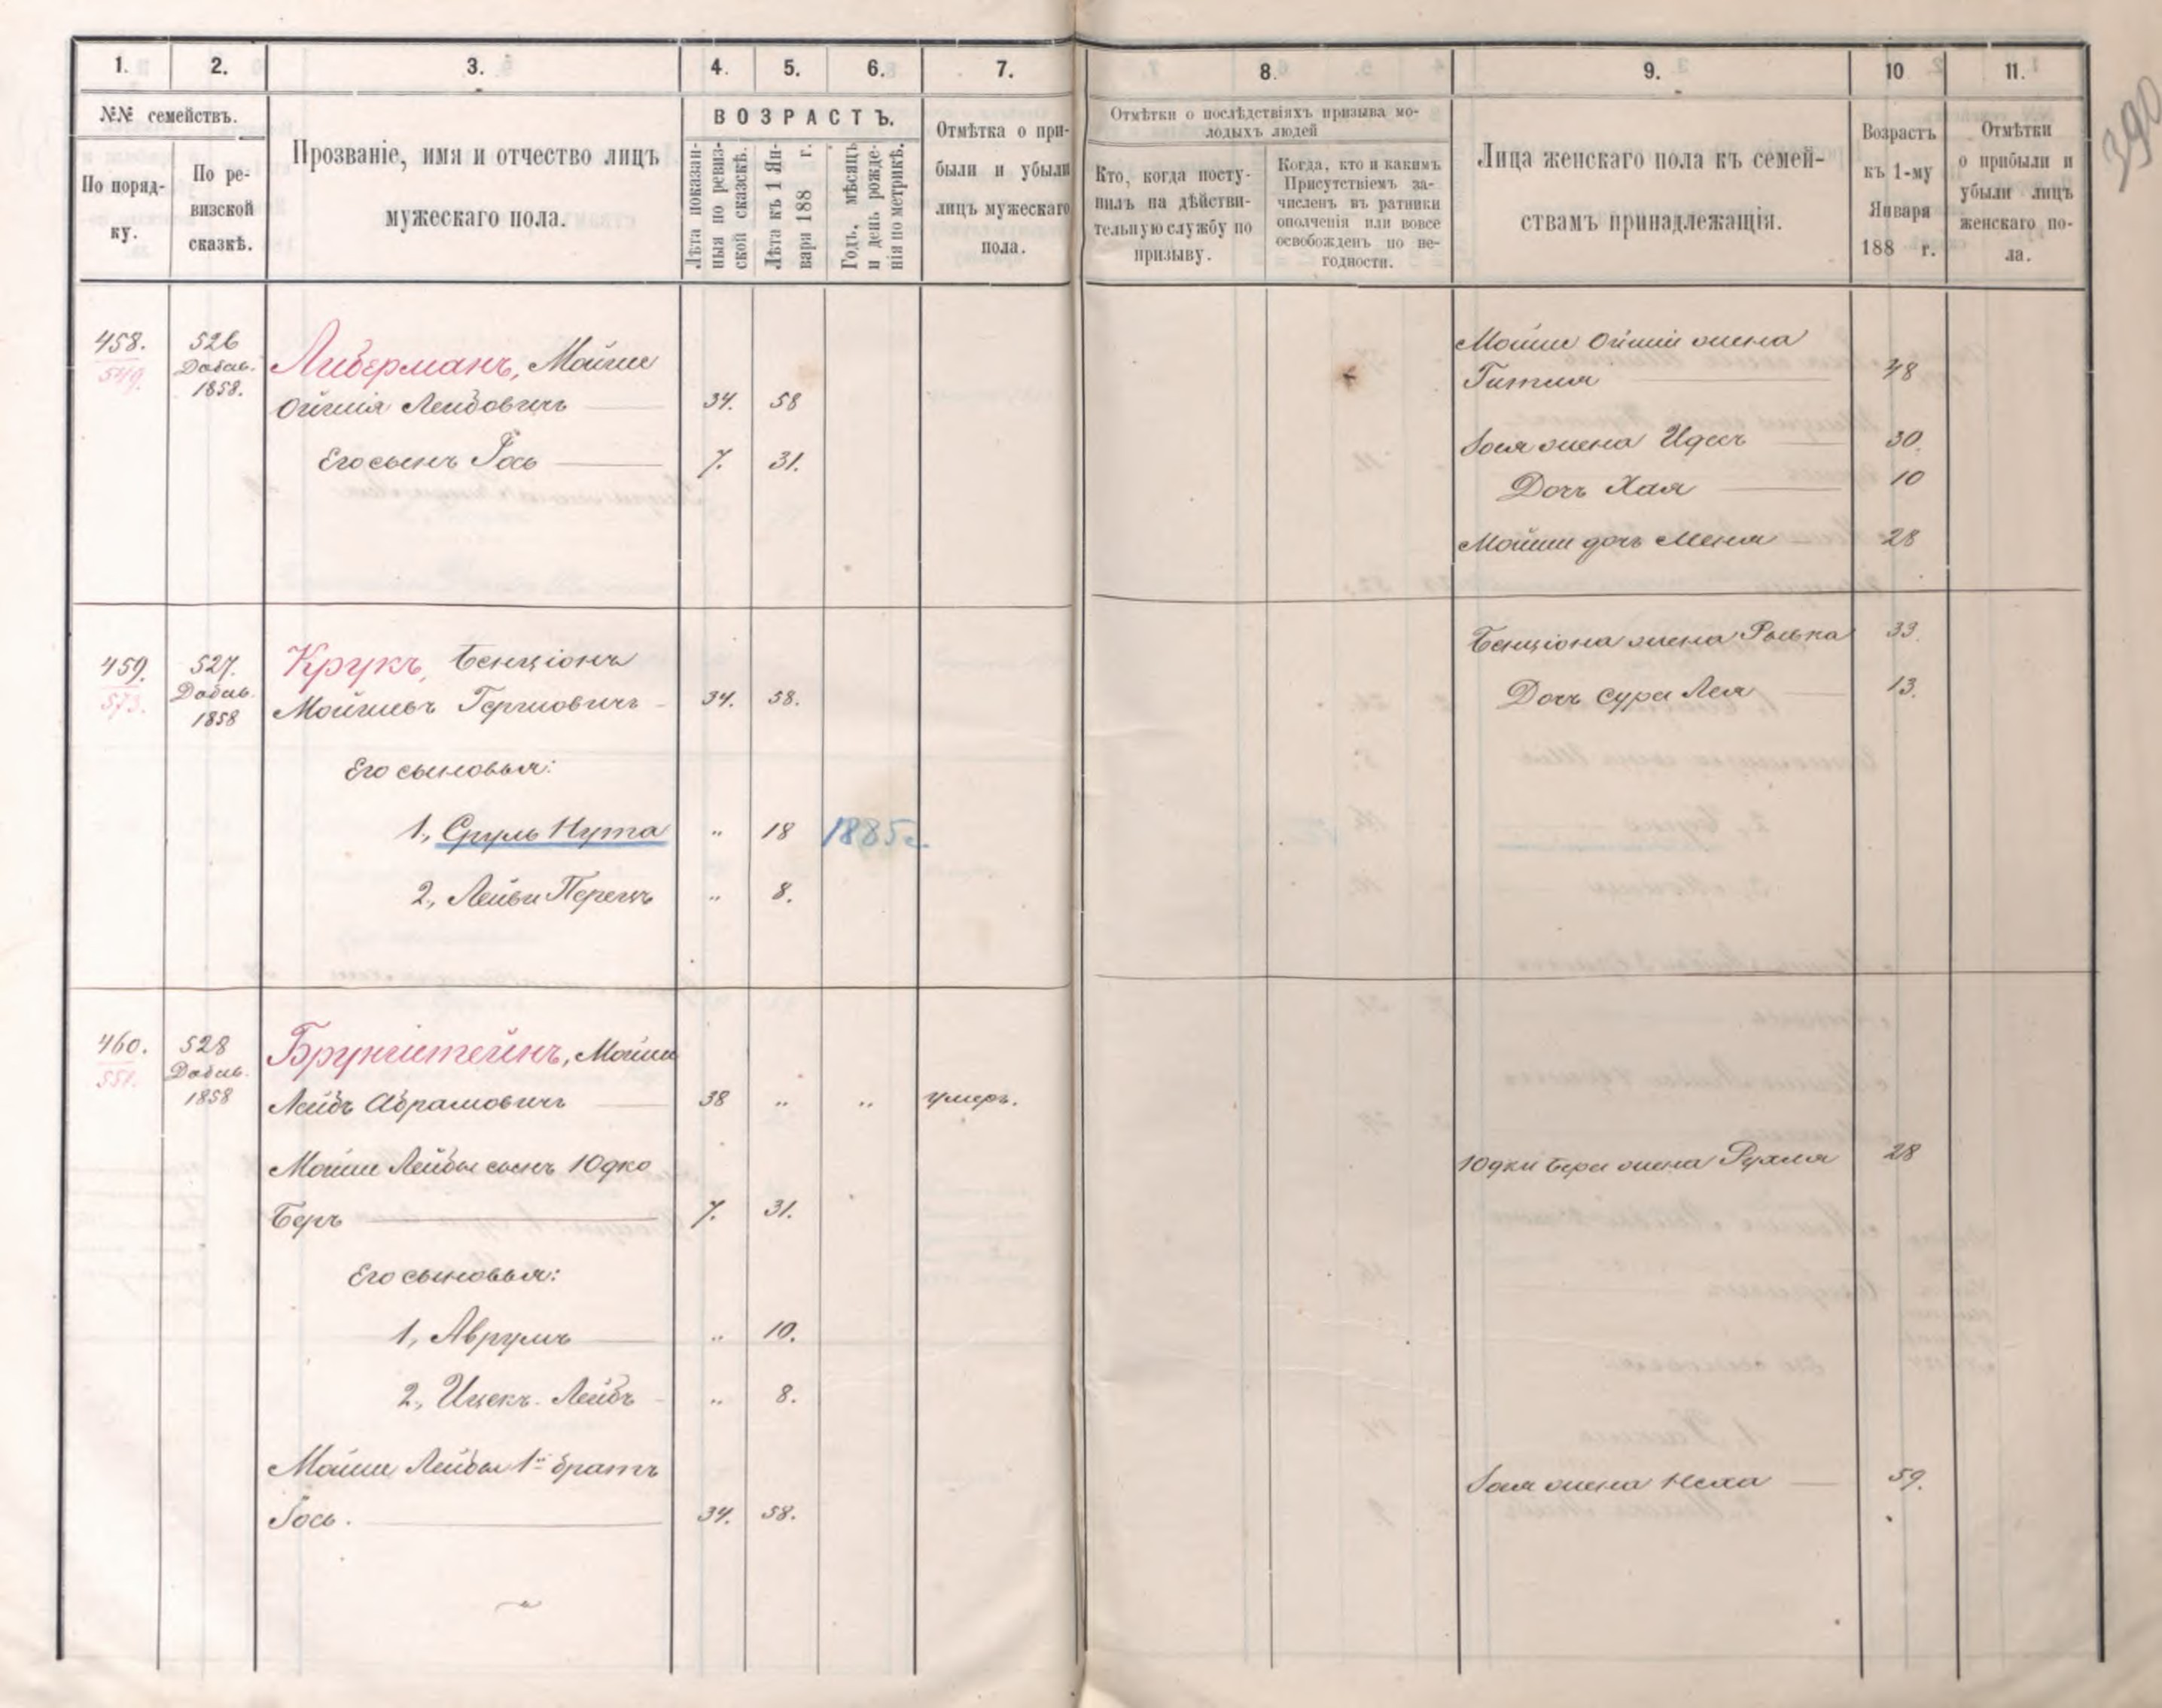 1.
2.
3.
4.
5.
6.
7.
8.
9.
10
11.
№№ семействъ.
По поряд-
ку.
По ре-
визской
сказкѣ.
Прозваніе, имя и отчество лицъ
мужескаго пола.
ВОЗРАСТЪ.
Лѣта показан-
ныя по ревиз-
ской сказскѣ.
Лѣта къ 1 Ян-
варя 188 г.
Годъ, мѣсяцъ
и день рожде-
нія по метрикѣ.
Отмѣтка о при-
были и убыли
лицъ мужескаго
пола.
Отмѣтки о послѣдствіяхъ призыва мо-
лодыхъ людей
Кто, когда посту-
пилъ на дѣйстви-
тельную службу по
призыву.
Когда, кто и какимъ
Присутствіемъ за-
численъ въ ратники
ополченія или вовсе
освобожденъ по не-
годности.
Лица женскаго пола къ семей-
ствамъ принадлежащія.
Возрастъ
къ 1-му
Января
188 г.
Отмѣтки
о прибыли и
убыли лицъ
женскаго по-
ла.
390
458.
549.
526
Добав.
1858.
Либерманъ, Мойше
Ойшія Лейбовичъ 34. 58
Его сынъ Іось 7. 31.
Мойши Ойшіи жена
Гитля 48
Іося жена Идесъ 30.
Дочь Хая 10
Мойши дочь Меня 28
459.
573.
527.
Добав.
1858
Крукъ, Бенціонъ
Мойшевъ Гершовичъ 34. 58.
Его сыновья:
1, Сруль Нута " 18 1885г.
2, Лейви Перецъ " 8.
Бенціона жена Ривка 33.
Дочь Сура Лея 13.
460.
551.
528
Добав.
1858
Брунштейнъ, Мойше
Лейбъ Абрамовичъ 38 " " умеръ.
Мойши Лейбы сынъ Юдко
Беръ 7. 31.
Его сыновья:
1, Аврумъ " 10.
2, Ицекъ-Лейбъ " 8.
Мойши Лейбы 1й братъ
Іось. 34. 58.
Юдки Бера жена Рухля 28
Іося жена Неха 59.